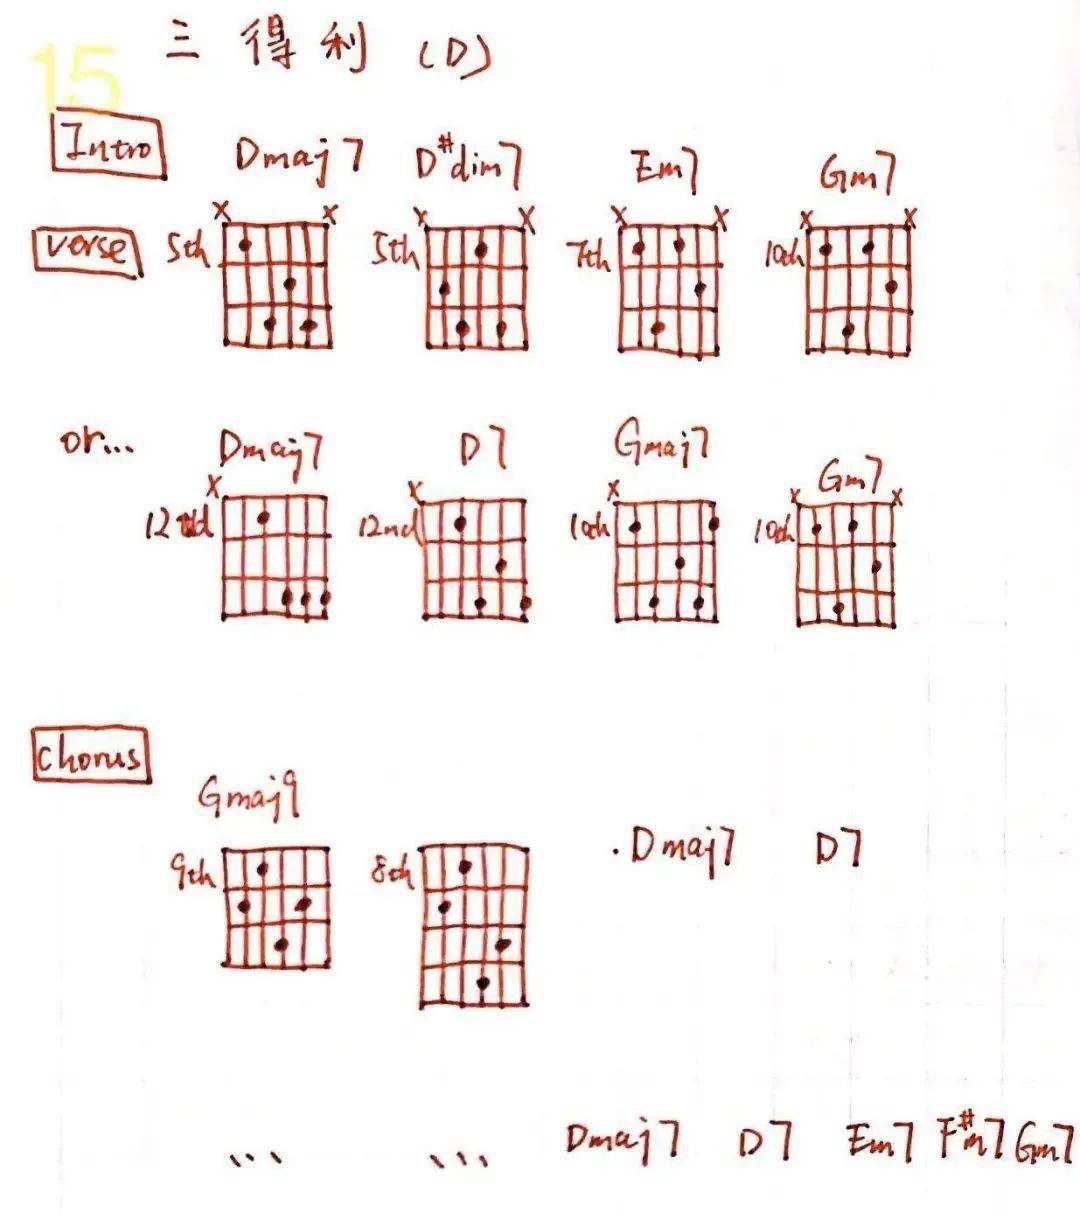 15
三得利 (D)
Intro Dmaj7 D#dim7 Em7 Gm7
x x x x x x x x
verse 5th 5th 7th 10th
or... Dmaj7 D7 Gmaj7 Gm7
x x x x x
12nd 12nd 10th 10th
chorus
Gmaj9
9th 8th . Dmaj7 D7
... ... Dmaj7 D7 Em7 F#m7 Gm7